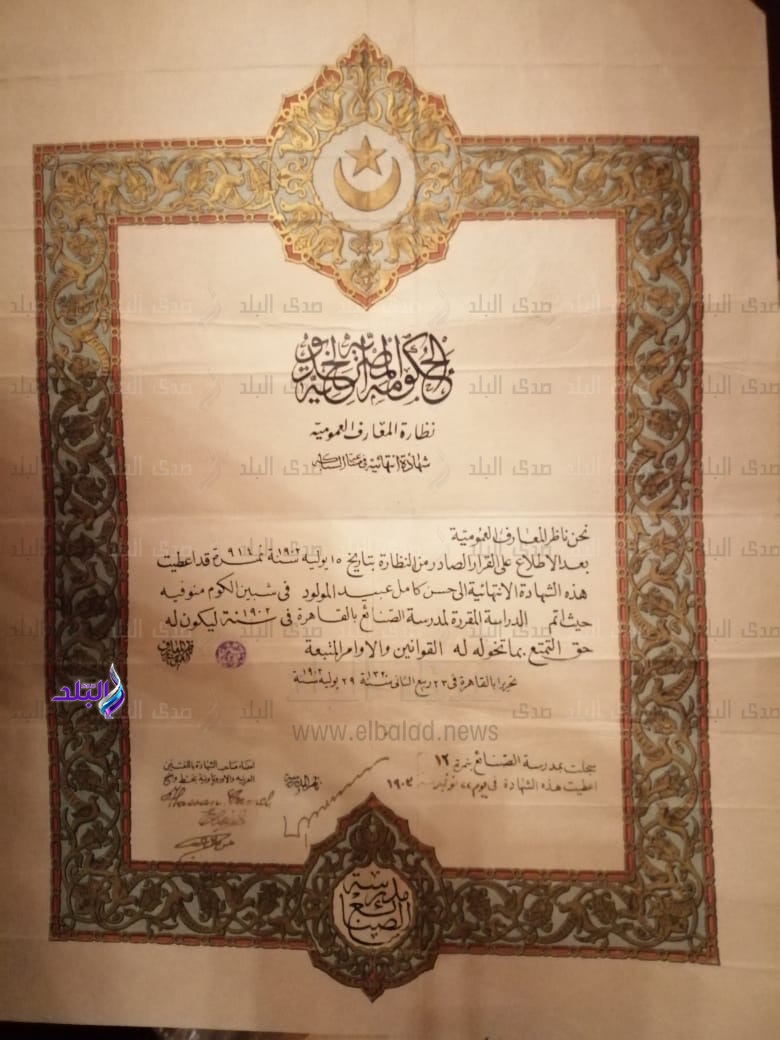 الحكومة المصرية الخديوية
نظارة المعارف العمومية
شهادة انتهائية فى
نحن ناظر المعارف العمومية
بعد الاطلاع على القرار الصادر من النظارة بتاريخ ١٥ يوليه سنة ١٩٠٢ نمرة ٩١١ قد اعطيت
هذه الشهادة الانتهائية الى حسن كامل عبيد المولود فى شبين الكوم منوفيه
حيث اتم الدراسة المقررة لمدرسة الصنائع بالقاهرة فى سنة ١٩٠٢ ليكون له
حق التمتع بما تخوله له القوانين والاوامر المتبعة
تحريرا بالقاهرة فى ٢٣ ربيع الثانى سنة ١٣٢٠ ٢٩ يوليه سنة ١٩٠٢
سجلت بمدرسة الصنائع بنمرة ١٢
اعطيت هذه الشهادة فى يوم ٢٢ نوفمبر سنة ١٩٠٣
ناظر المدرسة
امضاء صاحب الشهادة باللغتين
العربية والاوروباوية بخط واضح
Hassan Camel
Ebeid
مدرسة
الصنائع
صدى البلد
البلد
www.elbalad.news